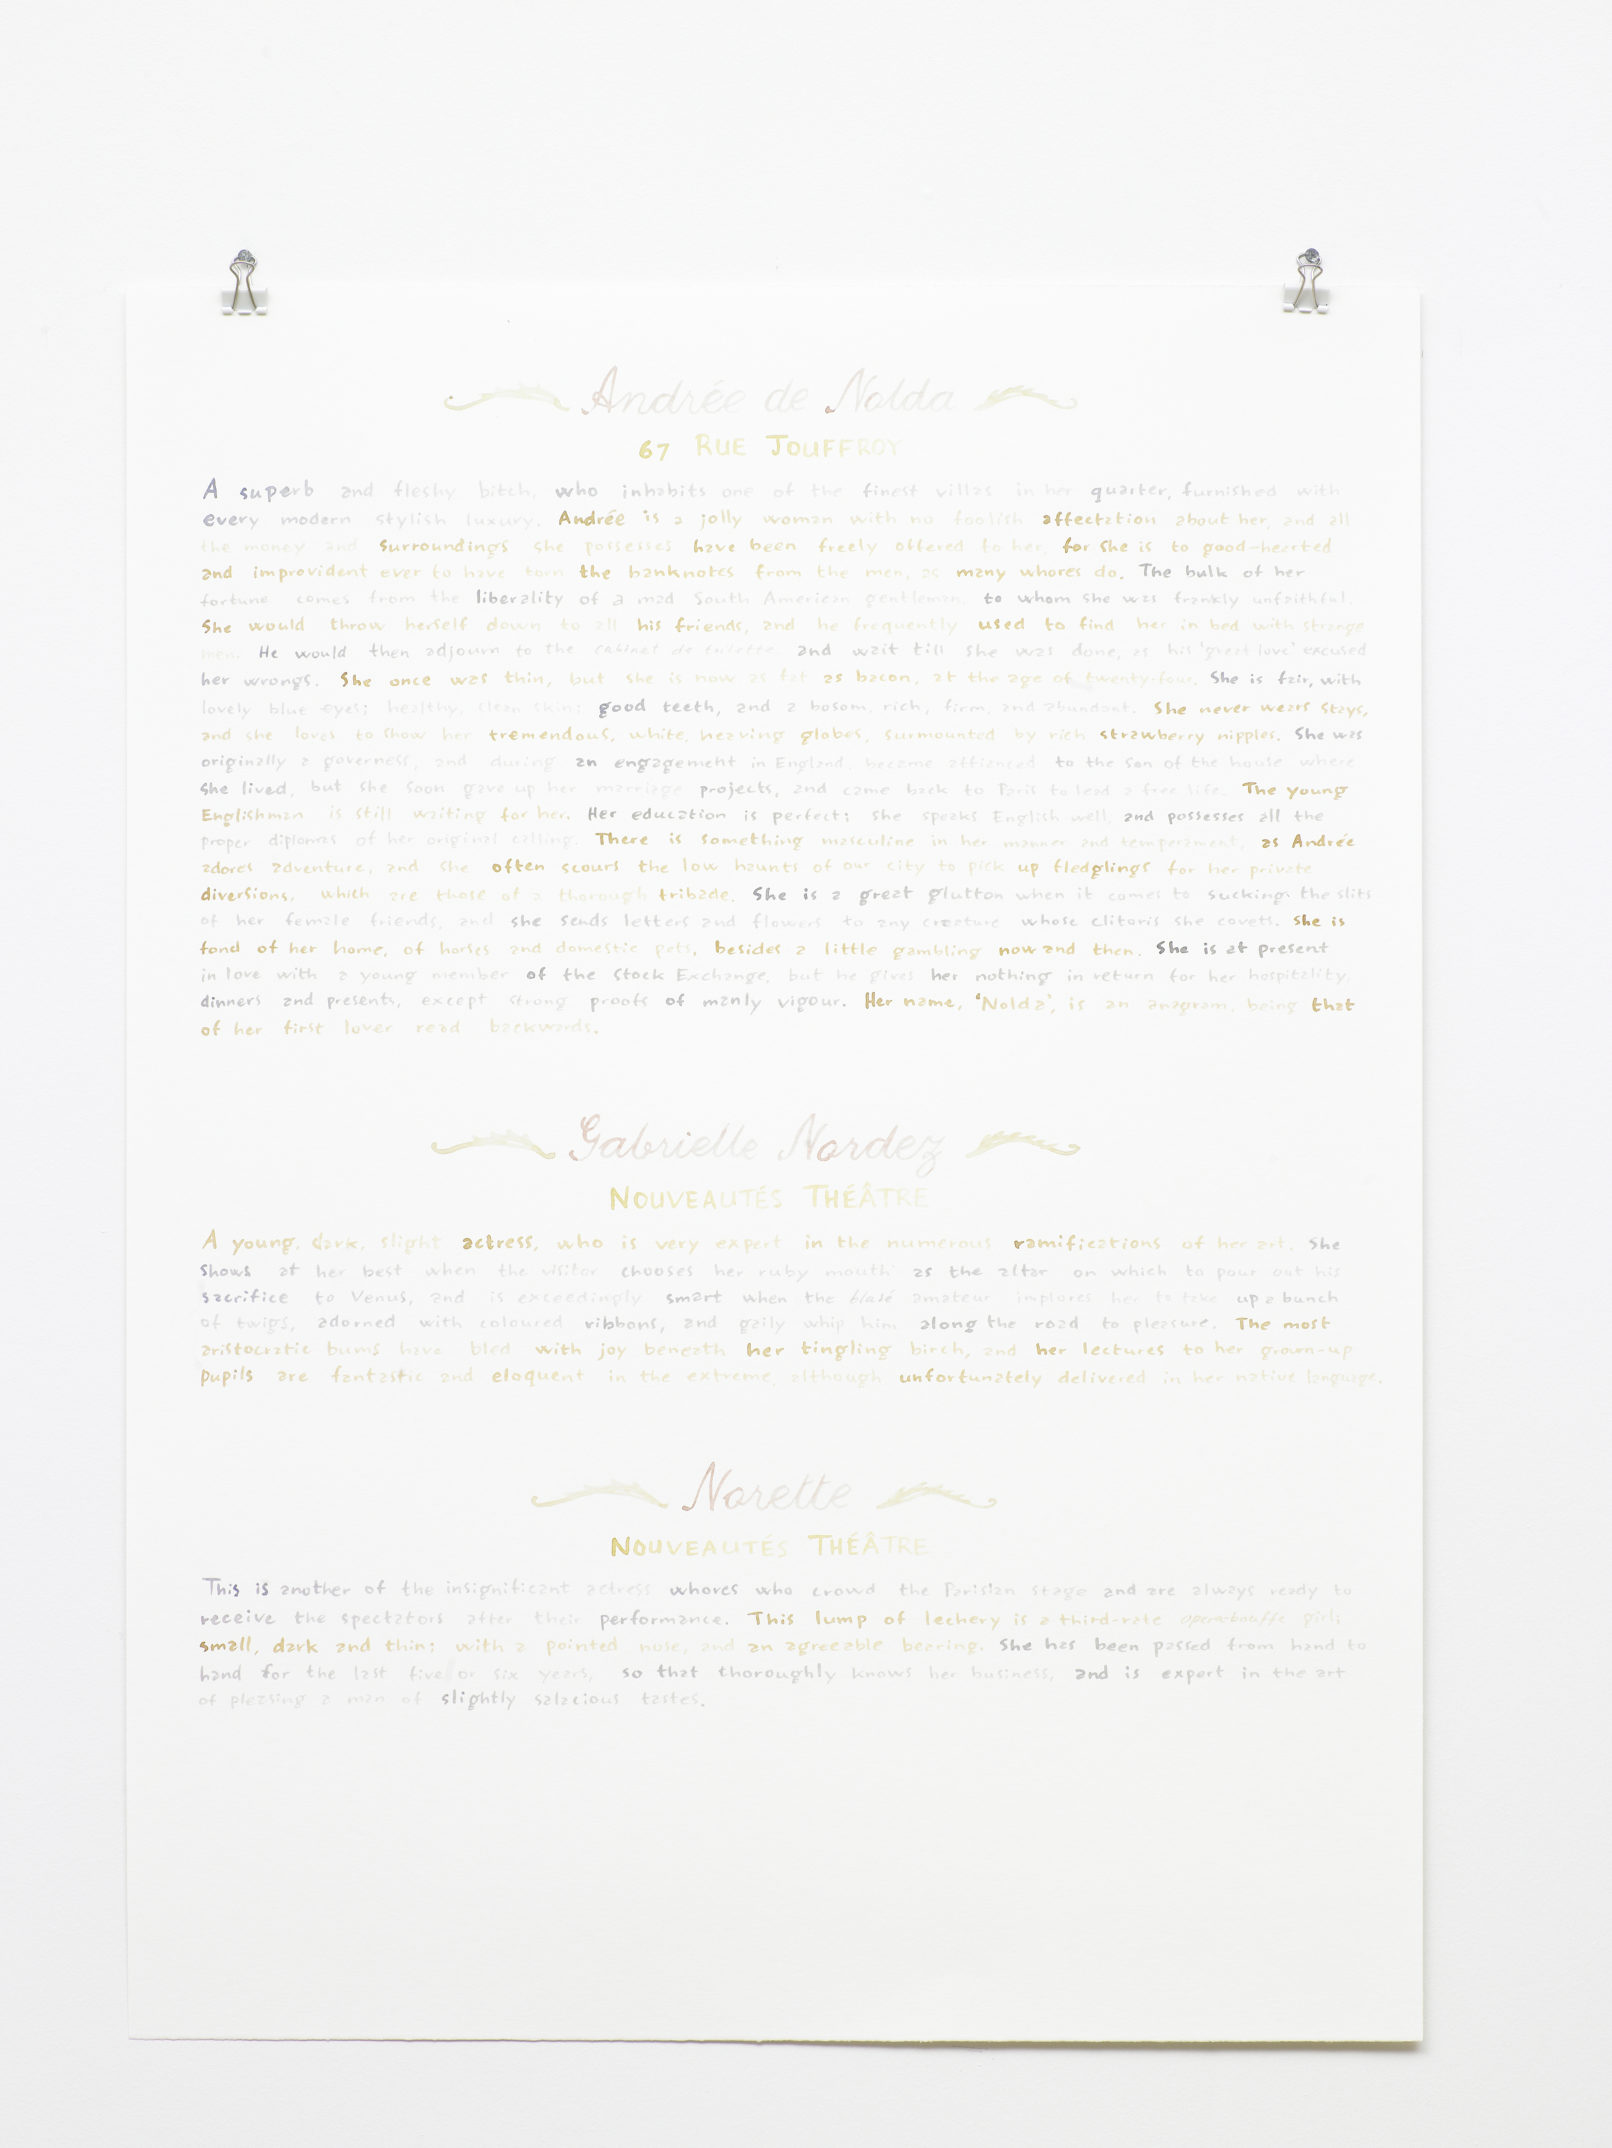 Andrée de Nolda
67 RUE JOUFFROY
A superb and fleshy bitch, who inhabits one of the finest villas in her quarter, furnished with
every modern stylish luxury. Andrée is a jolly woman with no foolish affectation about her, and all
the money and surroundings she possesses have been freely offered to her, for she is to good-hearted
and improvident ever to have torn the banknotes from the men, as many whores do. The bulk of her
fortune comes from the liberality of a mad South American gentleman, to whom she was frankly unfaithful.
She would throw herself down to all his friends, and he frequently used to find her in bed with strange
men. He would then adjourn to the cabinet de toilette and wait till she was done, as his 'great love' excused
her wrongs. She once was thin, but she is now as fat as bacon, at the age of twenty-four. She is fair, with
lovely blue eyes; healthy, clean skin; good teeth, and a bosom, rich, firm, and abundant. She never wears stays,
and she loves to show her tremendous, white, heaving globes, surmounted by rich strawberry nipples. She was
originally a governess, and during an engagement in England, became affianced to the son of the house where
she lived, but she soon gave up her marriage projects, and came back to Paris to lead a free life. The young
Englishman is still waiting for her. Her education is perfect; she speaks English well, and possesses all the
proper diplomas of her original calling. There is something masculine in her manner and temperament, as Andrée
adores adventure, and she often scours the low haunts of our city to pick up fledglings for her private
diversions, which are those of a thorough tribade. She is a great glutton when it comes to sucking the slits
of her female friends, and she sends letters and flowers to any creature whose clitoris she covets. She is
fond of her home, of horses and domestic pets, besides a little gambling now and then. She is at present
in love with a young member of the Stock Exchange, but he gives her nothing in return for her hospitality,
dinners and presents, except strong proofs of manly vigour. Her name, 'Nolda', is an anagram, being that
of her first lover read backwards.
Gabrielle Nordez
NOUVEAUTÉS THÉÂTRE
A young, dark, slight actress, who is very expert in the numerous ramifications of her art. She
shows at her best when the visitor chooses her ruby mouth as the altar on which to pour out his
sacrifice to Venus, and is exceedingly smart when the blasé amateur implores her to take up a bunch
of twigs, adorned with coloured ribbons, and gaily whip him along the road to pleasure. The most
aristocratic bums have bled with joy beneath her tingling birch, and her lectures to her grown-up
pupils are fantastic and eloquent in the extreme, although unfortunately delivered in her native language.
Norette
NOUVEAUTÉS THÉÂTRE
This is another of the insignificant actress whores who crowd the Parisian stage and are always ready to
receive the spectators after their performance. This lump of lechery is a third-rate opera-bouffe girl;
small, dark and thin; with a pointed nose, and an agreeable bearing. She has been passed from hand to
hand for the last five or six years, so that thoroughly knows her business, and is expert in the art
of pleasing a man of slightly salacious tastes.